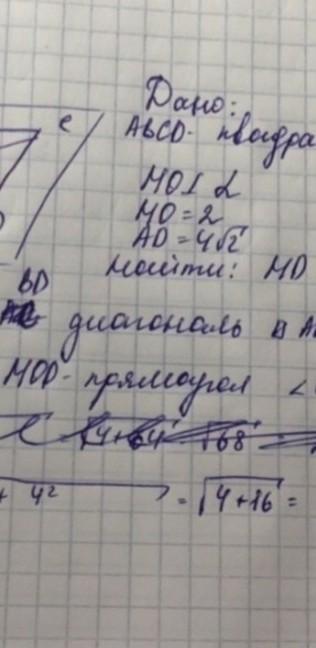 Дано:
C
ABCD - квадра
MO ⊥ α
MO = 2
AD = 4√2
Найти: MD
BD
диагональ в
MOD - прямоугол <
√4+64 √68
+ 4² = √4+16 =